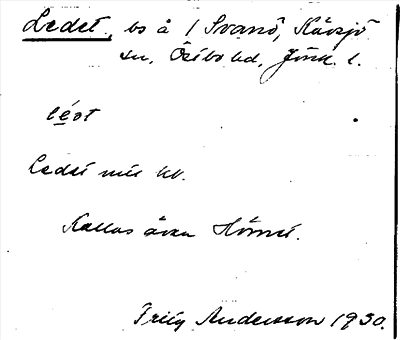 Ledet, bs å 1 Svanö, Kävsjö
sn, Östbo hd, Jönk. l.
léət
Ledet mit kv.
Kallas även Hörnet.
Frith Andersson 1930.